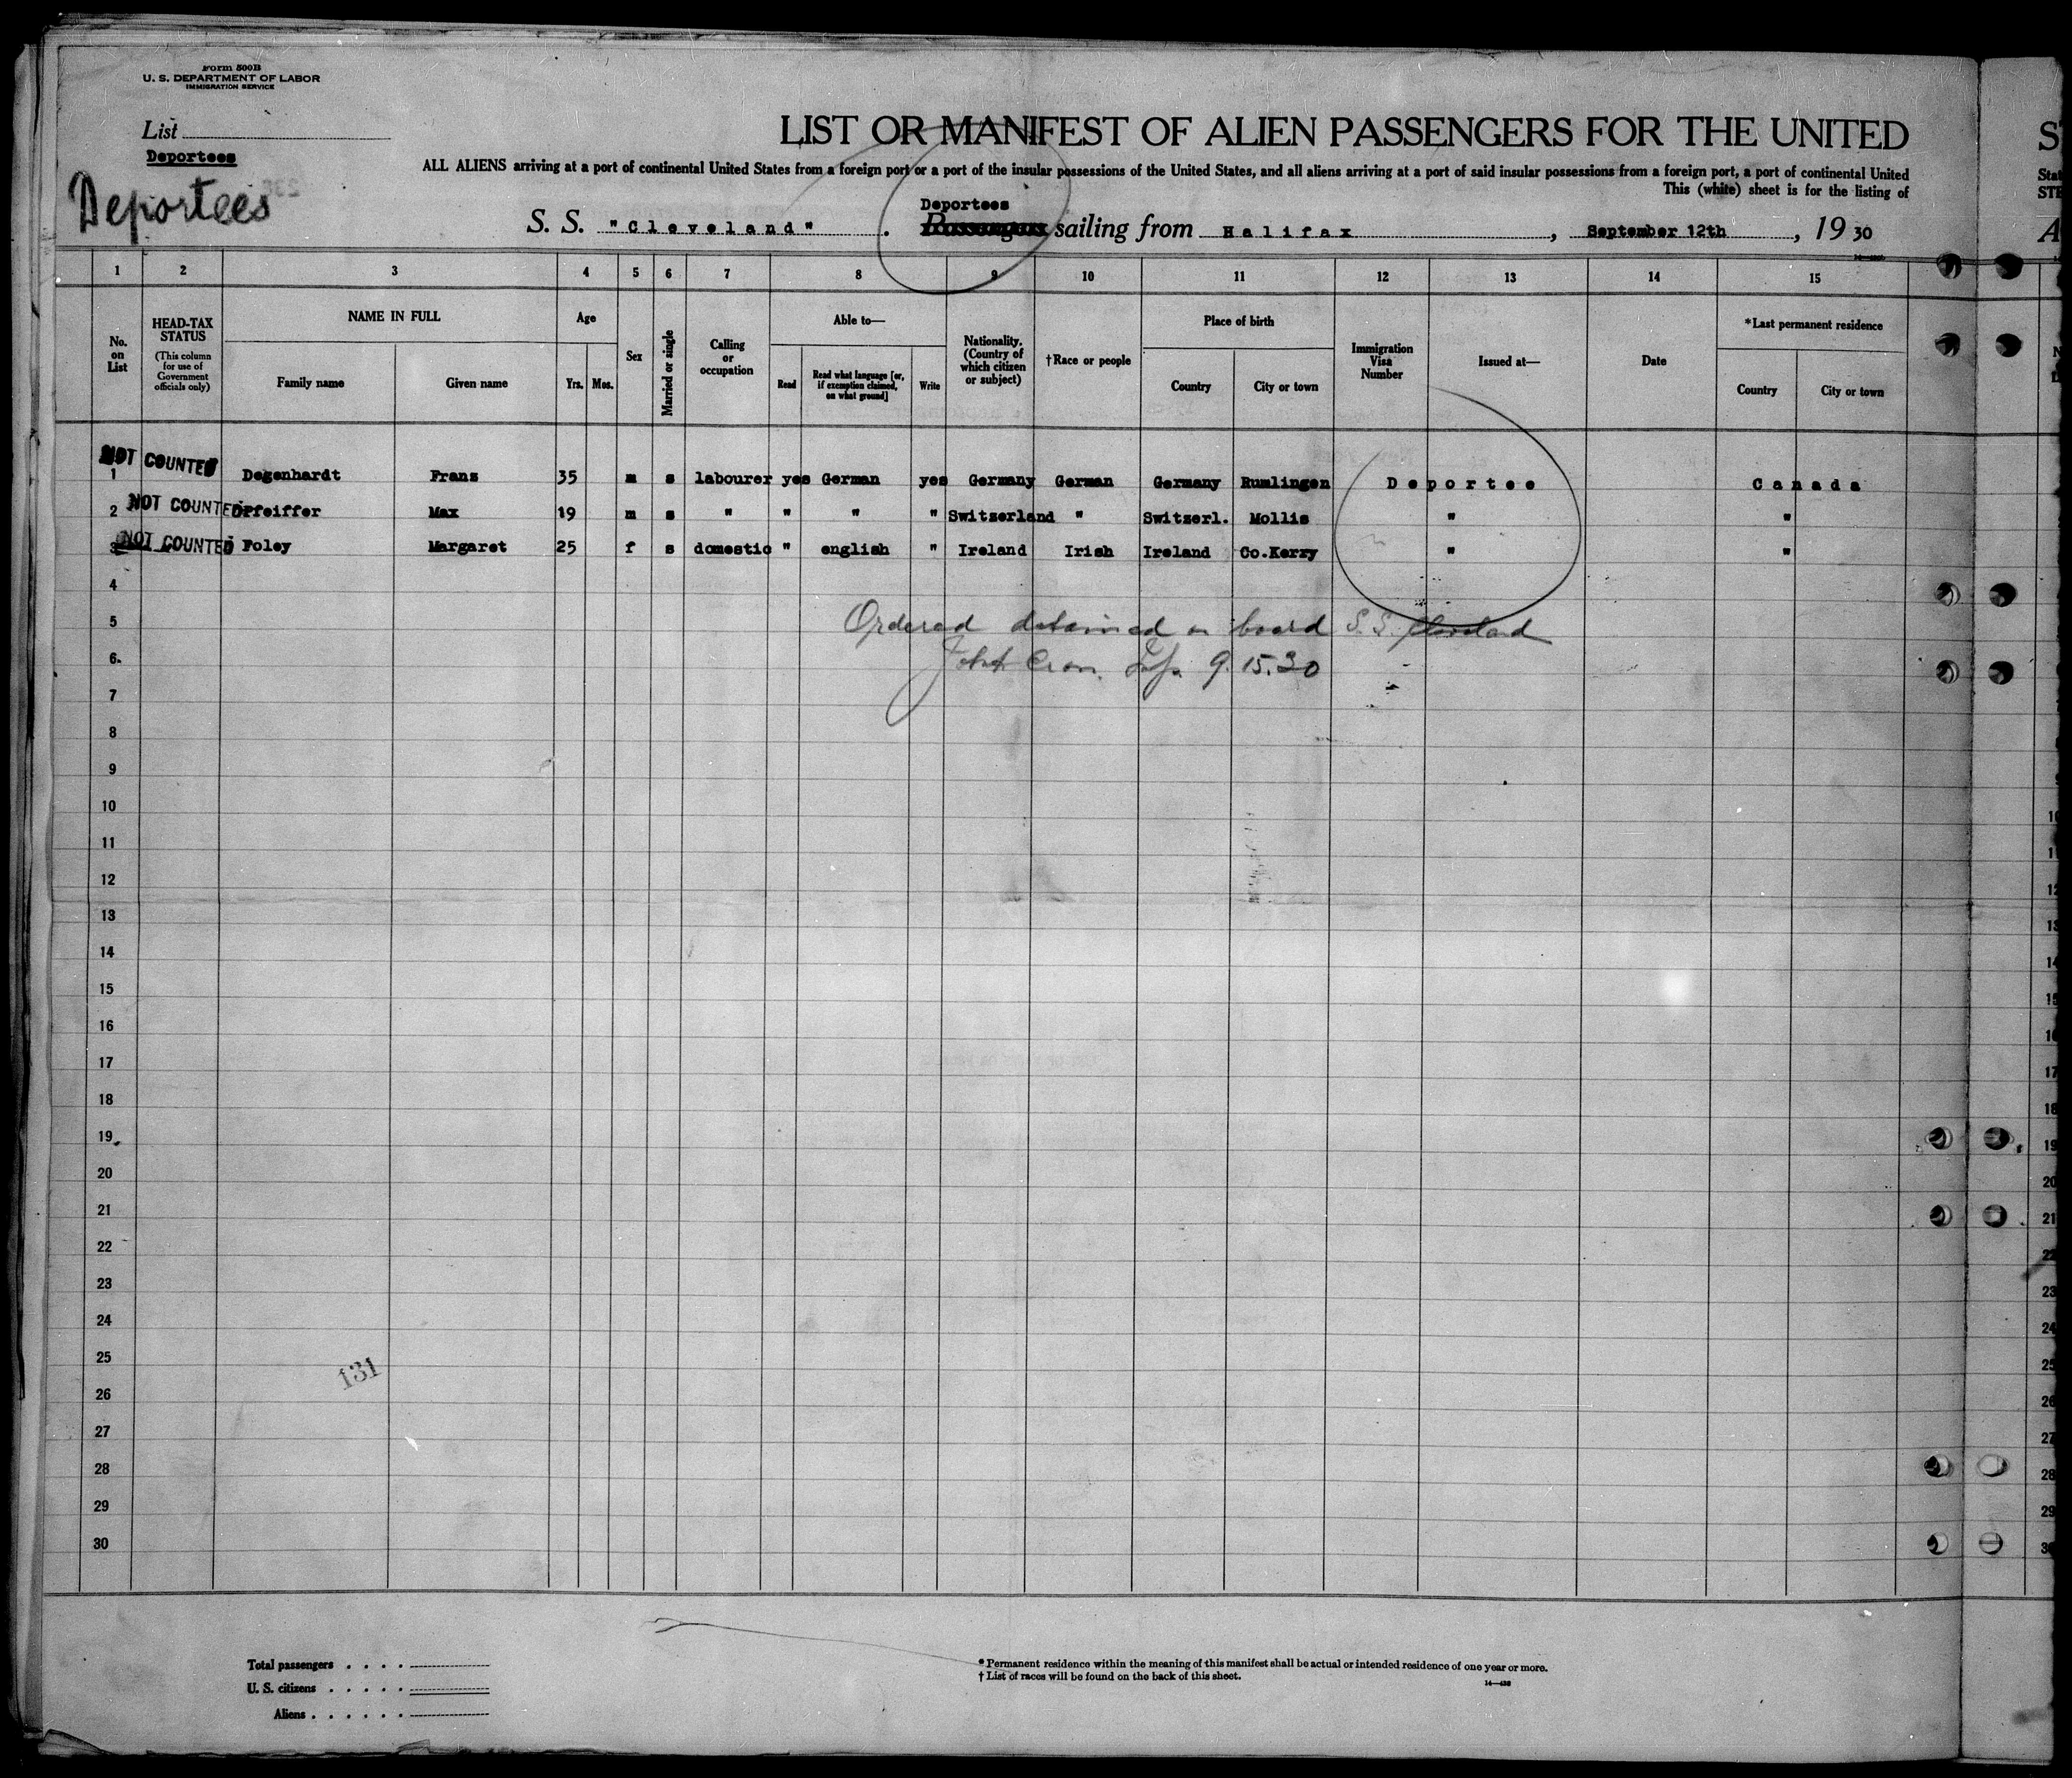 Form 500B
U. S. DEPARTMENT OF LABOR
IMMIGRATION SERVICE
List
Deportees
Deportees
LIST OR MANIFEST OF ALIEN PASSENGERS FOR THE UNITED
ALL ALIENS arriving at a port of continental United States from a foreign port or a port of the insular possessions of the United States, and all aliens arriving at a port of said insular possessions from a foreign port, a port of continental United
This (white) sheet is for the listing of
Deportees
S. S. "Cleveland". Passengers sailing from Halifax, September 12th, 1930
1 2 3 4 5 6 7 8 9 10 11 12 13 14 15
No. on List
HEAD-TAX STATUS
(This column for use of Government officials only)
NAME IN FULL
Family name Given name
Age
Yrs. Mos.
Sex
Married or single
Calling or occupation
Able to—
Read
Read what language [or, if exemption claimed, on what ground]
Write
Nationality. (Country of which citizen or subject)
†Race or people
Place of birth
Country City or town
Immigration Visa Number
Issued at—
Date
*Last permanent residence
Country City or town
NOT COUNTED
1 Degenhardt Franz 35 m s labourer yes German yes Germany German Germany Rumlingen Deportee Canada
NOT COUNTED
2 Pfeiffer Max 19 m s " " " " Switzerland " Switzerl. Mollis " "
NOT COUNTED
3 Foley Margaret 25 f s domestic " english " Ireland Irish Ireland Co.Kerry " "
4
5
Ordered detained on board S.S. Cleveland
6
9.15.30
7
8
9
10
11
12
13
14
15
16
17
18
19
20
21
22
23
24
25
131
26
27
28
29
30
Total passengers . . . .
U. S. citizens . . . . .
Aliens . . . . . .
* Permanent residence within the meaning of this manifest shall be actual or intended residence of one year or more.
† List of races will be found on the back of this sheet.